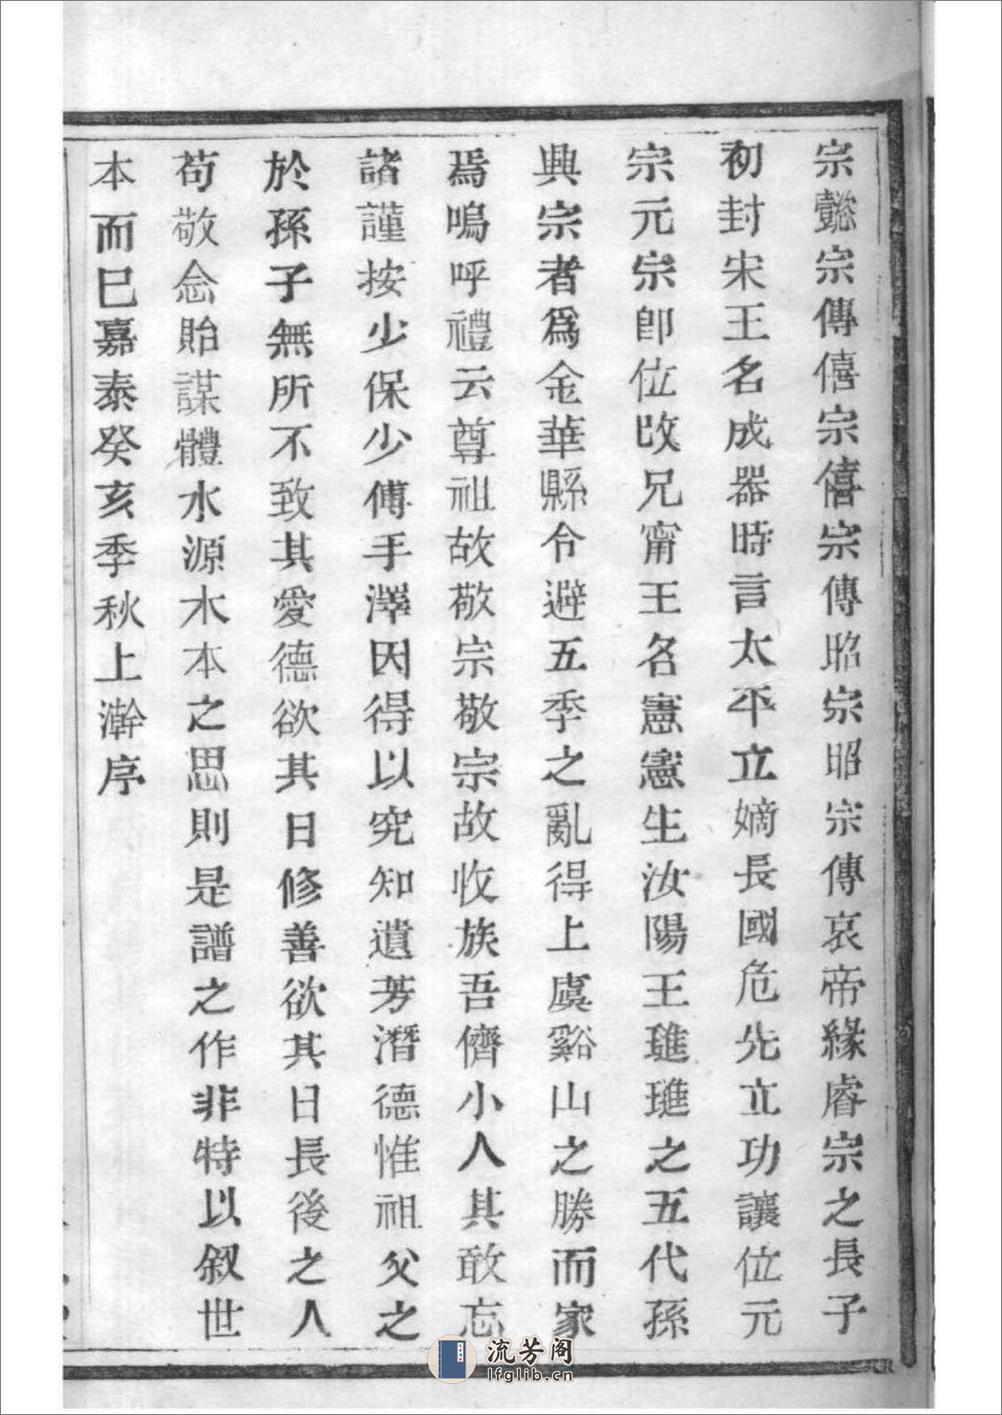 宗懿宗傳僖宗僖宗傳昭宗昭宗傳哀帝緣睿宗之長子
初封宋王名成器時言太平立嫡長國危先立功讓位元
宗元宗卽位改兄甯王名憲憲生汝陽王璡璡之五代孫
興宗者爲金華縣令避五季之亂得上虞谿山之勝而家
焉嗚呼禮云尊祖故敬宗敬宗故收族吾儕小人其敢忘
諸謹按少保少傅手澤因得以究知遺芳潛德惟祖父之
於孫子無所不致其愛德欲其日修善欲其日長後之人
苟敬念貽謀體水源木本之思則是譜之作非特以叙世
本而巳嘉泰癸亥季秋上澣序
流芳阁
lfglib.cn